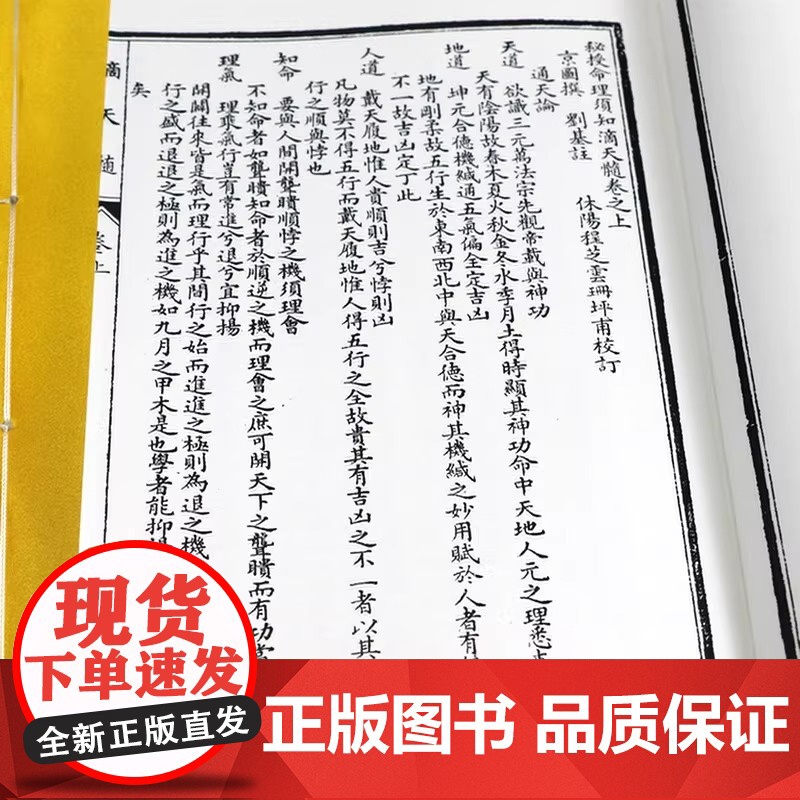 秘授命理須知滴天髓卷之上
京圖撰 劉基註 休陽程芝雲珊坪甫校訂
通天論
天道 欲識三元萬法宗先觀帝載與神功
天有陰陽故春木夏火秋金冬水季月土得時顯其神功命中天地人元之理悉
地道 坤元合德機緘通五氣偏全定吉凶
地有剛柔故五行生於東南西北中與天合德而神其機緘之妙用賦於人者有
不一故吉凶定丁此
人道 戴天履地惟人貴順則吉兮悖則凶
凡物莫不得五行而戴天履地惟人得五行之全故貴其有吉凶之不一者以其
行之順與悖也
知命 要與人間開聾聵順悖之機須理會
不知命者如聾聵知命者於順逆之機而理會之庶可開天下之聾聵而有功
理氣 理乘氣行豈有常進兮退兮宜抑揚
開闢往來皆是氣而理行乎其間行之始而進進之極則為退之機
行之盛而退退之極則為進之機如九月之甲木是也學者能抑
矣
滴天髓 卷上
我们保证
全新正版直发
正版图书 品质保证